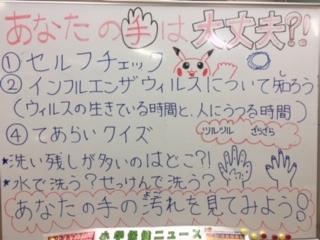 あなたの手は大丈夫?!
①セルフチェック
②インフルエンザウィルスについて知ろう
(ウィルスの生きている時間と、人にうつる時間)
④てあらいクイズ
ツルツル ざらざら
★洗い残しが多いのはどこ?!
★水で洗う?せっけんで洗う?
あなたの手の汚れを見てみよう!
ニュース